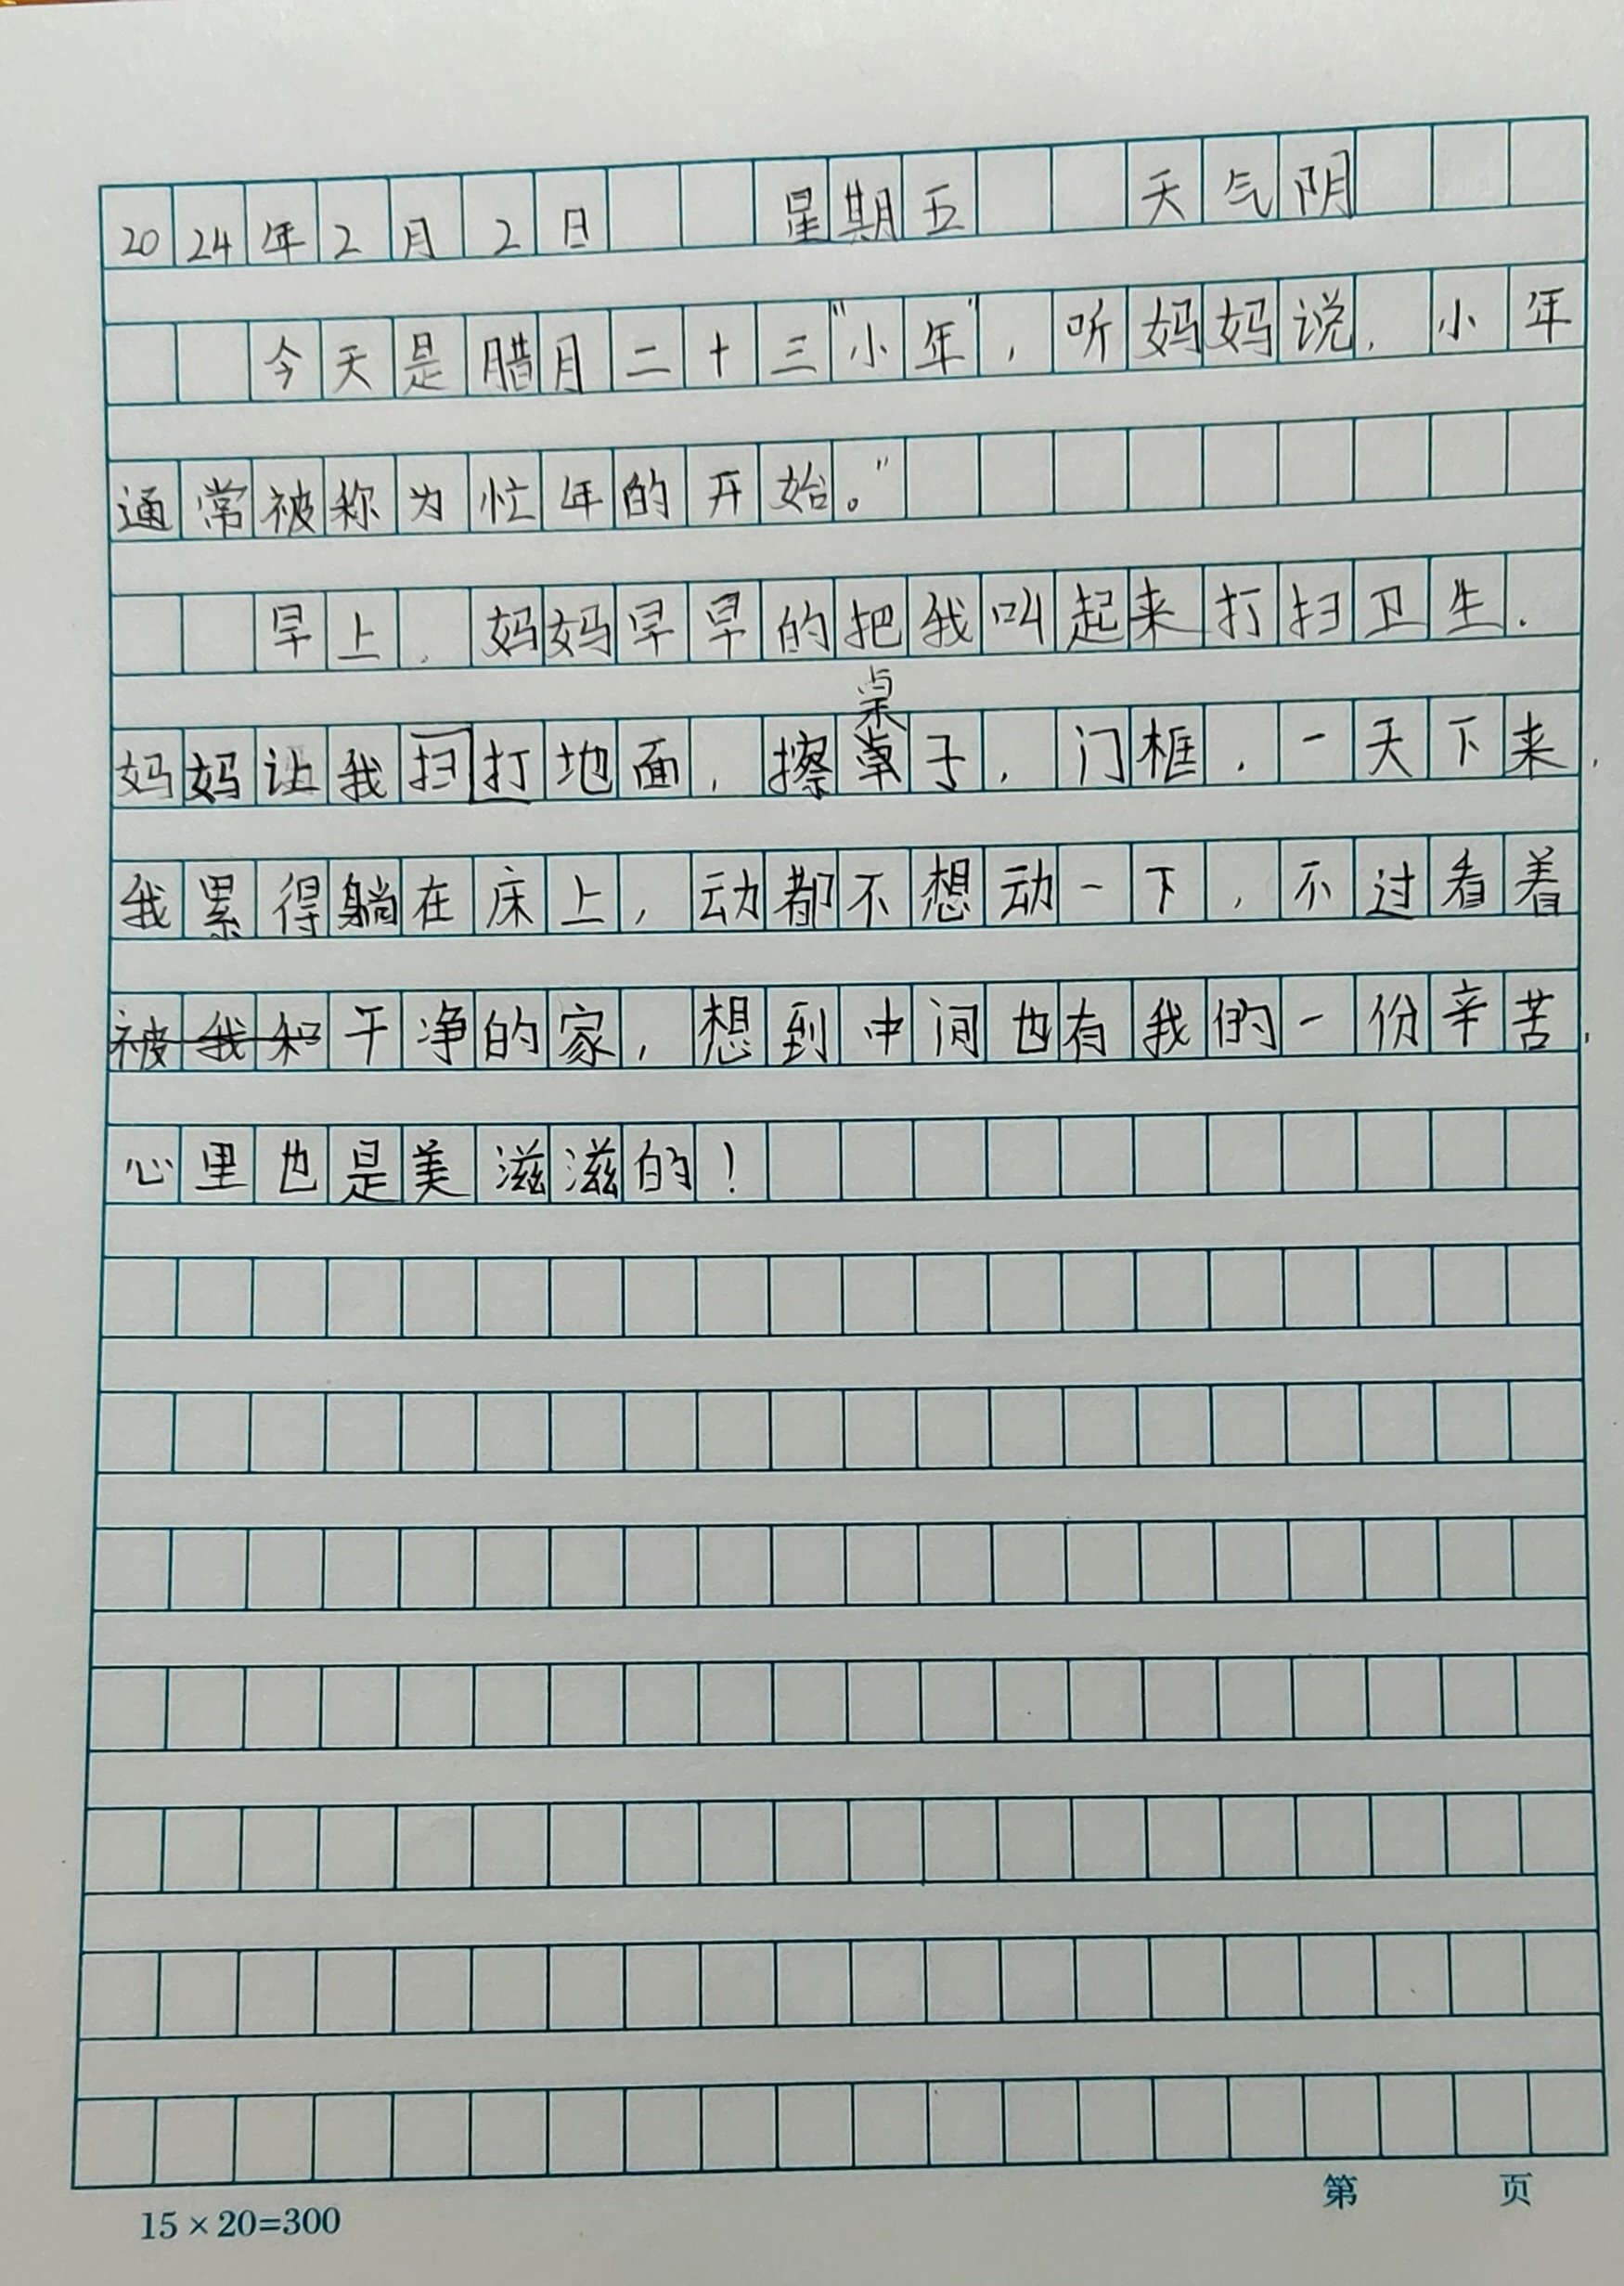 2024年2月2日 星期五 天气阴
今天是腊月二十三"小年",听妈妈说,小年
通常被称为忙年的开始。"
早上,妈妈早早的把我叫起来打扫卫生.
桌
妈妈让我扫打地面,擦草子,门框,一天下来,
我累得躺在床上,动都不想动一下,不过看着
被我和干净的家,想到中间也有我们的一份辛苦,
心里也是美滋滋的!
15×20=300
第 页